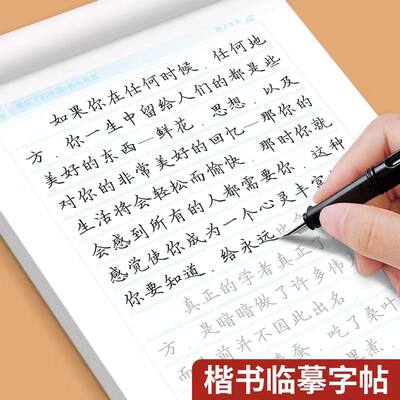 如果你在任何时候，任何地
方，你一生中留给人们的都是些
美好的东西—鲜花，思想，以及
对你的非常美好的回忆—那你的
生活将会轻松而愉快。那时你就
会感到所有的人都需要你，这种
感觉使你成为一个心灵丰富
你要知道，给永远
真正的学者真正了
方，是暗暗做了许多伟
前并不因此出名。
吃了桑叶
楷书临摹字帖